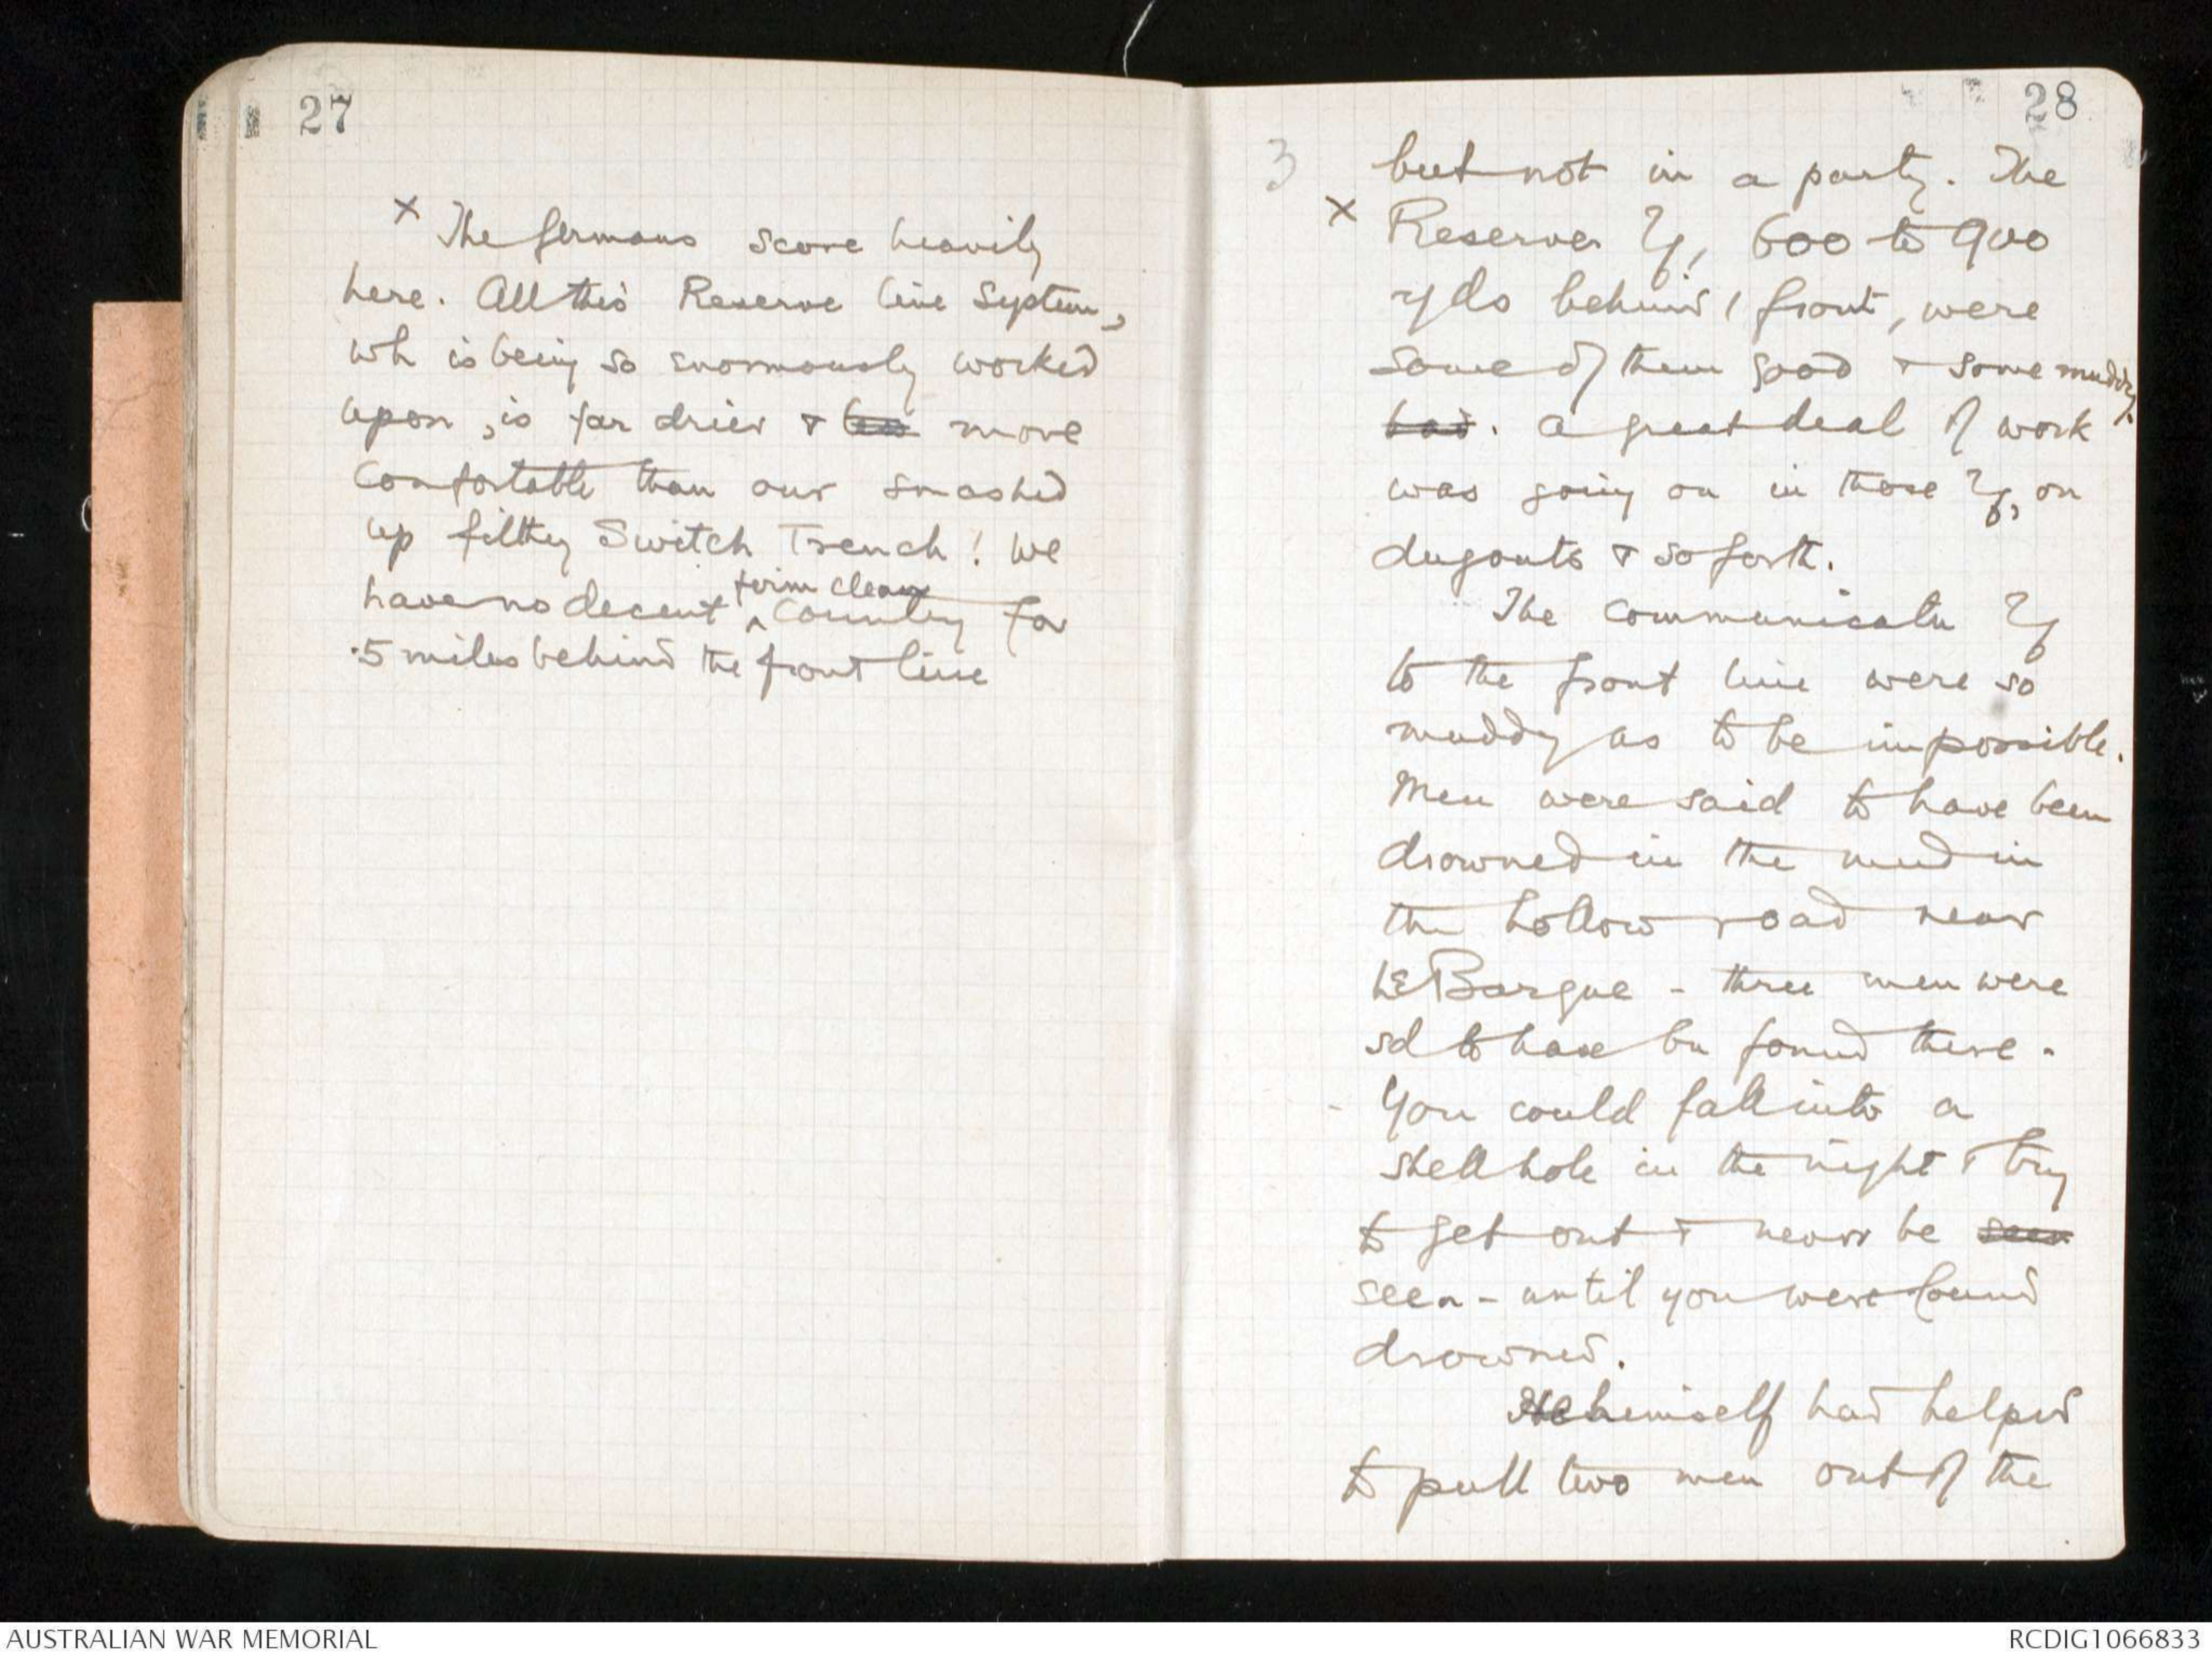 27
x The Germans score heavily
here. All this Reserve line System,
wh is being so enormously worked
upon, is far drier & more
comfortable than our smashed
up filthy Switch Trench! We
have no decent ^ firm clean country for
5 miles behind the front line
28
3 but not in a party. The
x Reserve T/s, 600 to 900
yds behind / front, were
some of them good & some muddy.
bad. A great deal of work
was going on in those T/s, on
dugouts & so forth.
The communicatn T/s
to the front line were so
muddy as to be impossible.
Men were said to have been
drowned in the mud in
the hollow road near
Le Barque - three men were
sd to have bn found there.
- You could fall into a
shell hole in the night & try
to get out & never be seen
seen - until you were found
drowned.
He himself had helped
to pull two men out of the
AUSTRALIAN WAR MEMORIAL
RCDIG1066833